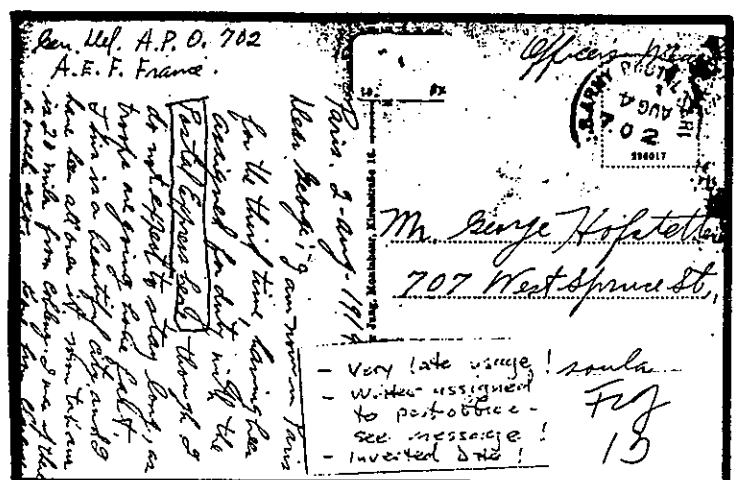 Gen. Del. A.P.O. 702
A.E.F. France.
Paris. 2-Aug-191
Dear George; I am now in Paris
for the third time, having been
assigned for duty with the
Postal Express here, though I
do not expect to stay long, as
troops are going home fast.
This is a beautiful city, and I
have been all over it.
is 20 miles from
a week ago.
Officer's Mail
AUG 4
702
236017
Mr. George Hofstetter
707 West Spruce St.,
soula
- Very late usage!
- Writer assigned
to post office -
see message!
- Inverted Date!
13